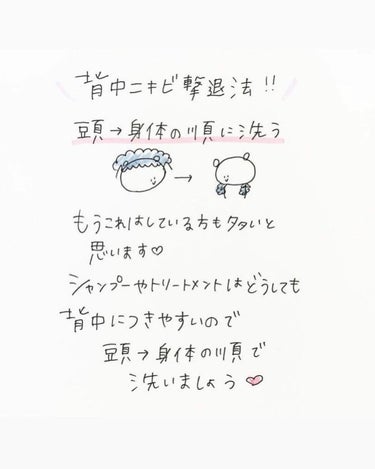 背中ニキビ撃退法!!
頭→身体の順に洗う
→
もうこれはしている方も多いと
思います♡
シャンプーやトリートメントはどうしても
背中につきやすいので
頭→身体の順で
洗いましょう♥